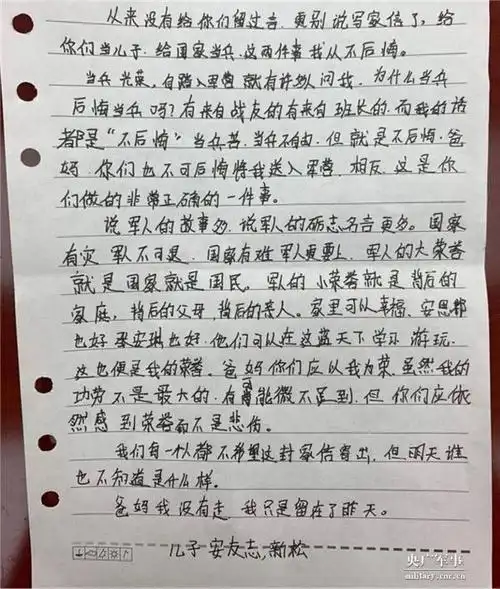 从来没有给你们留过言，更别说写家信了，给
你们当儿子，给国家当兵，这两件事我从不后悔。
当兵光荣，自踏入军营就有许多人问我，为什么当兵
后悔当兵吗？有来自战友的有来自班长的，而我的话
都是“不后悔”当兵苦，当兵不自由，但就是不后悔，爸
妈，你们也不可后悔将我送入军营，相反，这是你
们做的非常正确的一件事。
说军人的故事多，说军人的砺志名言更多。国家
有灾 军人不可是，国家有难军人更要上，军人的大荣誉
就是国家就是国民。军人的小荣誉就是背后的
家庭，背后的父母，背后的亲人。家里可以幸福，安恩
也好 安琪也好，他们可以在这蓝天下学习 游玩，
这也便是我的荣誉。爸妈你们应以我为荣，虽然我的
功劳不是最大的，有可能微不足到，但你们应依
然感到荣誉而不是悲伤。
我们每一个人都不希望这封家信寄出，但明天谁
也不知道是什么样。
爸妈我没有走，我只是留在了昨天。
儿子 安友志 新松
央广军事
military.cnr.cn